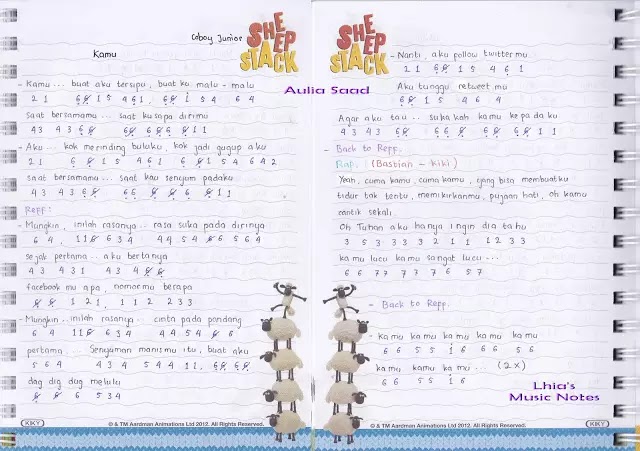 Coboy Junior
SHEEP STACK
Kamu
- Kamu ... buat aku tersipu, buat ku malu - malu
2 1 6 6 1 5 4 6 1, 6 1 5 4 6 4
saat bersamamu ... saat kusapa dirimu
4 3 4 3 6 6 6 6 6 6 6 1 1
- Aku ... koh merinding buluku, koh jadi gugup aku
2 1 6 6 1 5 4 6 1 6 1 5 4 6 4 2
saat bersamamu ... saat kau senyum padaku
4 3 4 3 6 6 6 6 6 6 6 1 1
Reff:
- Mungkin, inilah rasanya .. rasa suka pada dirinya
6 4, 1 1 6 6 3 4 4 4 5 4 6 6 5 6 4
sejak pertama ... aku bertanya
4 3 4 3 1 4 3 4 6 6
facebook mu apa, nomormu berapa
6 6 1 2 1, 1 1 2 2 3 3
- Mungkin .. inilah rasanya ... cinta pada pandang
6 4 1 1 6 6 3 4 4 4 5 4 6 6
pertama ... Senyuman manismu itu, buat aku
5 6 4 4 3 4 5 4 4 1 1, 6 6, 6 6
dag dig dug melulu
6 6 6 5 3 4
KIKY
© & TM Aardman Animations Ltd 2012. All Rights Reserved.
SHEEP STACK
Aulia Saad
- Nanti, aku follow twittermu
2 1 6 6 1 5 4 6 1
Aku tunggu retweet mu
6 6 1 5 4 6 4
Agar aku tau .. sukakah kamu kepadaku
4 3 4 3 6 6 6 6 6 6 6 1 1
- Back to Reff.
Rap. (Bastian - kiki)
Yeah, cuma kamu, cuma kamu, yang bisa membuatku
tidur tak tentu, memikirkanmu, pujaan hati, oh kamu
cantik sekali.
Oh Tuhan aku hanya ingin dia tahu
3 5 3 3 3 3 2 1 1 1 2 3 3
kamu lucu kamu sangat lucu ...
6 6 7 7 7 7 7 6 5 7
- Back to Reff.
- kamu kamu kamu kamu kamu
6 6 5 5 1 6 6 6 5 6
kamu kamu ka mu ... (2x)
6 6 5 5 1 6
Lhia's
Music Notes
© & TM Aardman Animations Ltd 2012. All Rights Reserved.
KIKY